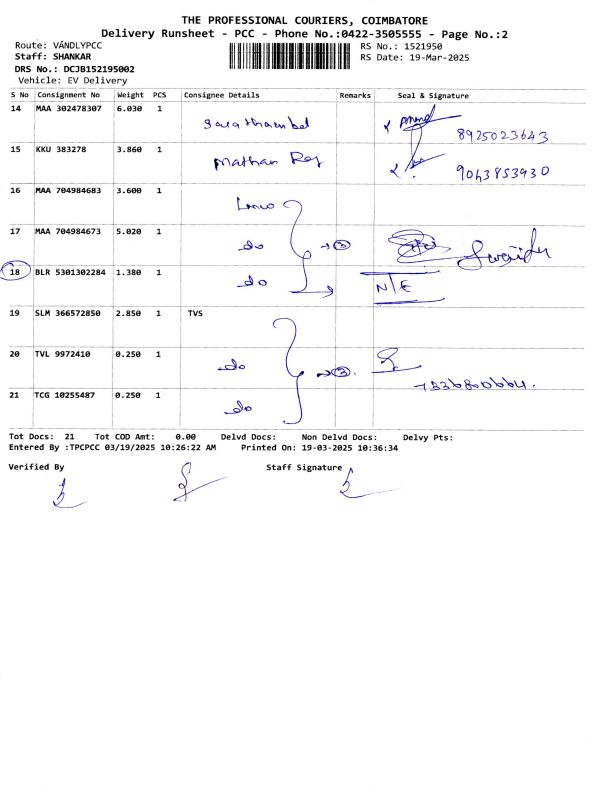 THE PROFESSIONAL COURIERS, COIMBATORE
Delivery Runsheet - PCC - Phone No.:0422-3505555 - Page No.:2
Route: VANDLYPCC
RS No.: 1521950
Staff: SHANKAR
RS Date: 19-Mar-2025
DRS No.: DCJB152195002
Vehicle: EV Delivery
S No Consignment No Weight PCS Consignee Details Remarks Seal & Signature
14 MAA 302478307 6.030 1
8925023643
15 KKU 383278 3.860 1 Mathan Raj
9043853930
16 MAA 704984683 3.600 1
17 MAA 704984673 5.020 1 do → 3
18 BLR 5301302284 1.380 1 do N/E
19 SLM 366572850 2.850 1 TVS
20 TVL 9972410 0.250 1 do → 3
21 TCG 10255487 0.250 1 do
Tot Docs: 21 Tot COD Amt: 0.00 Delvd Docs: Non Delvd Docs: Delvy Pts:
Entered By :TPCPCC 03/19/2025 10:26:22 AM Printed On: 19-03-2025 10:36:34
Verified By Staff Signature